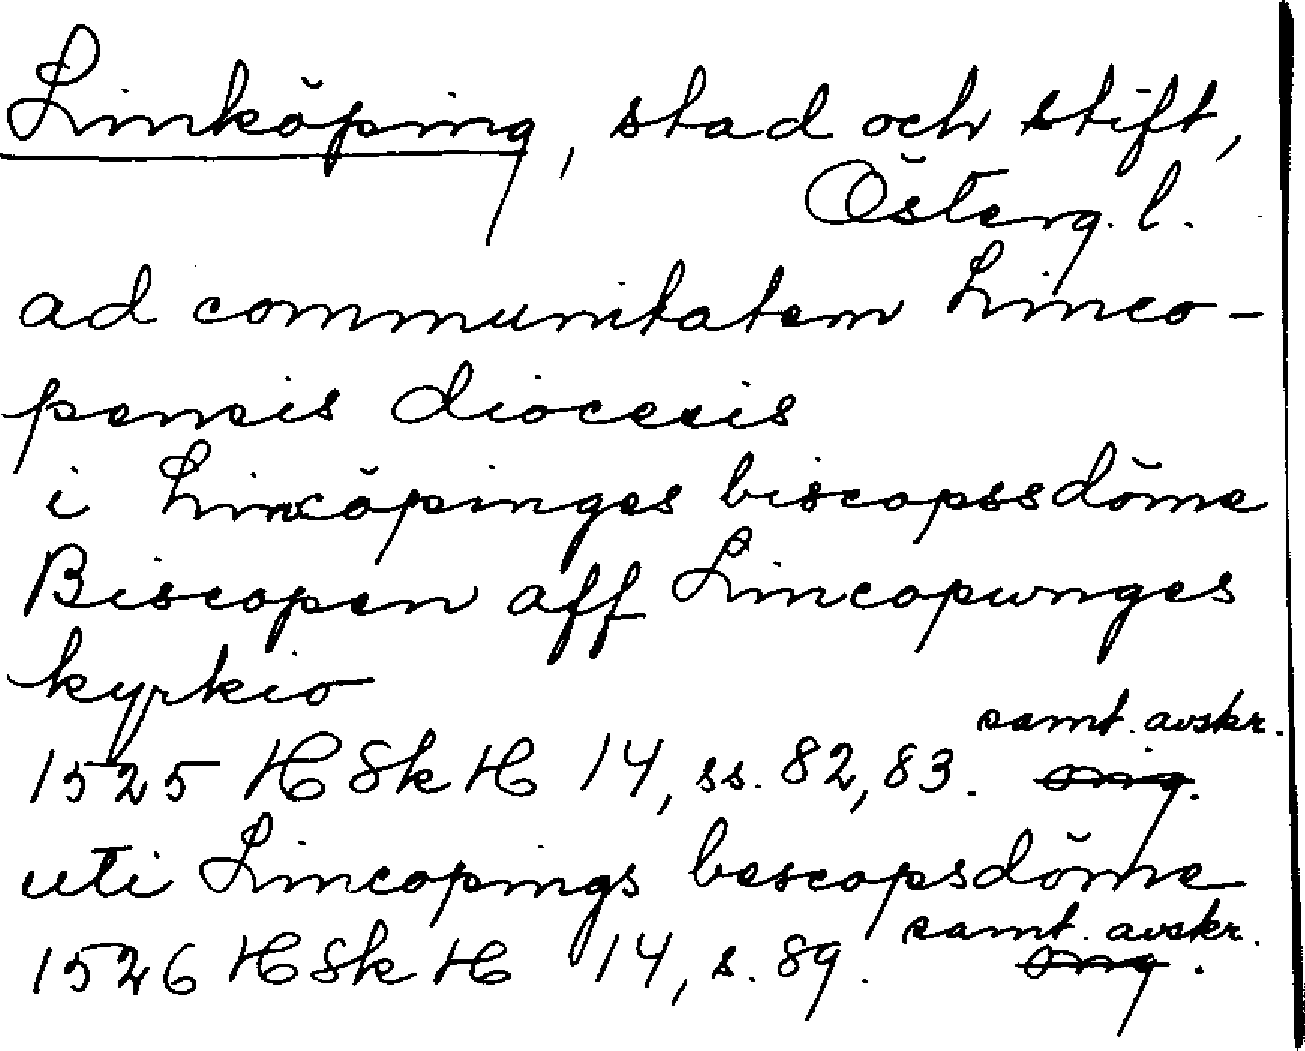 Linköping, stad och stift,
Österg. l.
ad communitatem Linco-
pensis diocesis
i Lincöpinges biscopssdöme
Biscopen aff Lincopunges
kyrkio
samt. avskr.
1525 HSkH 14, ss. 82, 83. org.
uti Lincopings bescopsdöme
samt. avskr.
1526 HSkH 14, s. 89. org.